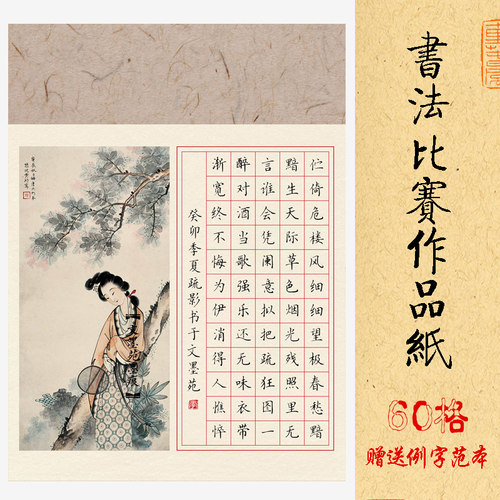 書法比賽作品紙
60格
赠送例字范本
伫倚危楼风细细望极春愁黯
黯生天际草色烟光残照里无
言谁会凭阑意拟把疏狂图一
醉对酒当歌强乐还无味衣带
渐宽终不悔为伊消得人憔悴
癸卯季夏疏影书于文墨苑